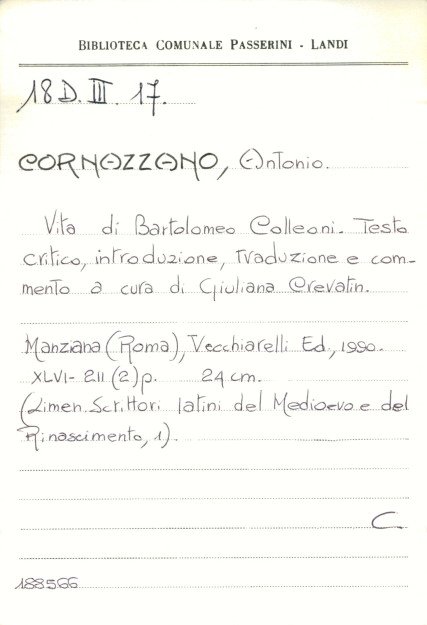 BIBLIOTECA COMUNALE PASSERINI - LANDI
18 D. III. 17.
CORNAZZANO, Antonio.
Vita di Bartolomeo Colleoni. Testo
critico, introduzione, traduzione e com-
mento a cura di Giuliana Crevatin.
Manziana (Roma), Vecchiarelli Ed., 1990.
XLVI- 211 (2) p. 24 cm.
(Limen. Scrittori latini del Medioevo e del
Rinascimento, 1).
C.
188566